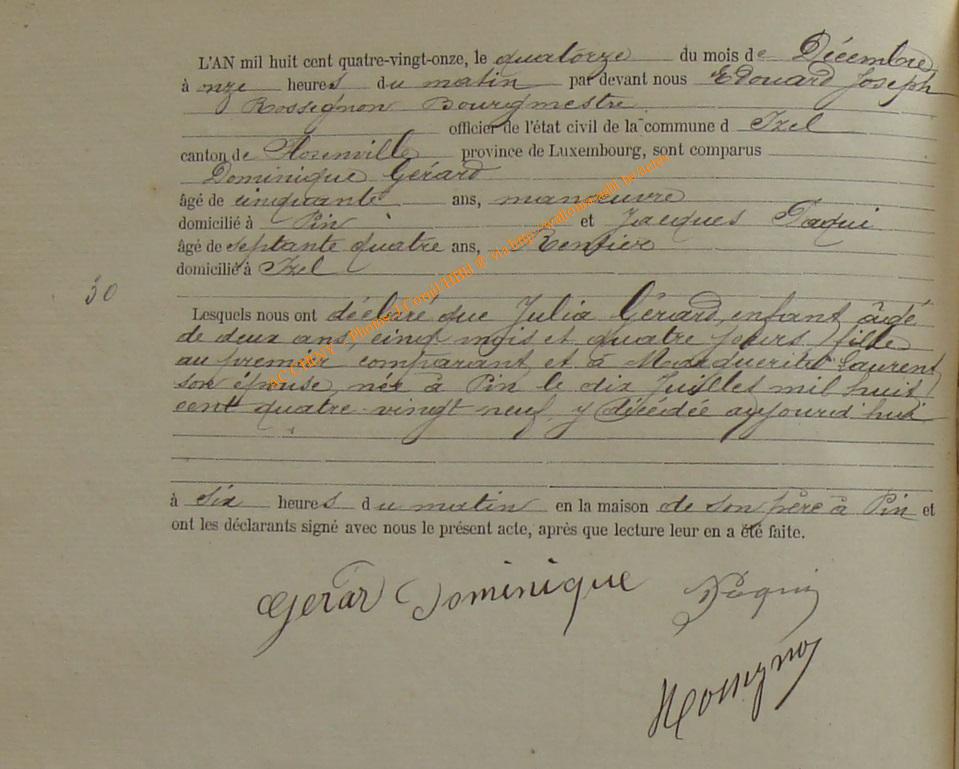 L'AN mil huit cent quatre-vingt-onze, le quatorze du mois de Décembre
à onze heures du matin par devant nous Edouard Joseph
Rossignon Bourgmestre
officier de l'état civil de la commune d Izel
canton de Florenville province de Luxembourg, sont comparus
Dominique Gérard
âgé de cinquante ans, manœuvre
domicilié à Pin et Jacques Paqui
âgé de septante quatre ans, Rentier
domicilié à Izel
30
Lesquels nous ont déclaré que Julia Gérard, enfant âgé
de deux ans, cinq mois et quatre jours, fille
au premier comparant et à Laurent
son épouse, née à Pin le dix Juillet mil huit
cent quatre-vingt neuf y décédée aujourd'hui
à six heures du matin en la maison de son père à Pin et
ont les déclarants signé avec nous le présent acte, après que lecture leur en a été faite.
Gérar Dominique Paqui
Rossignon